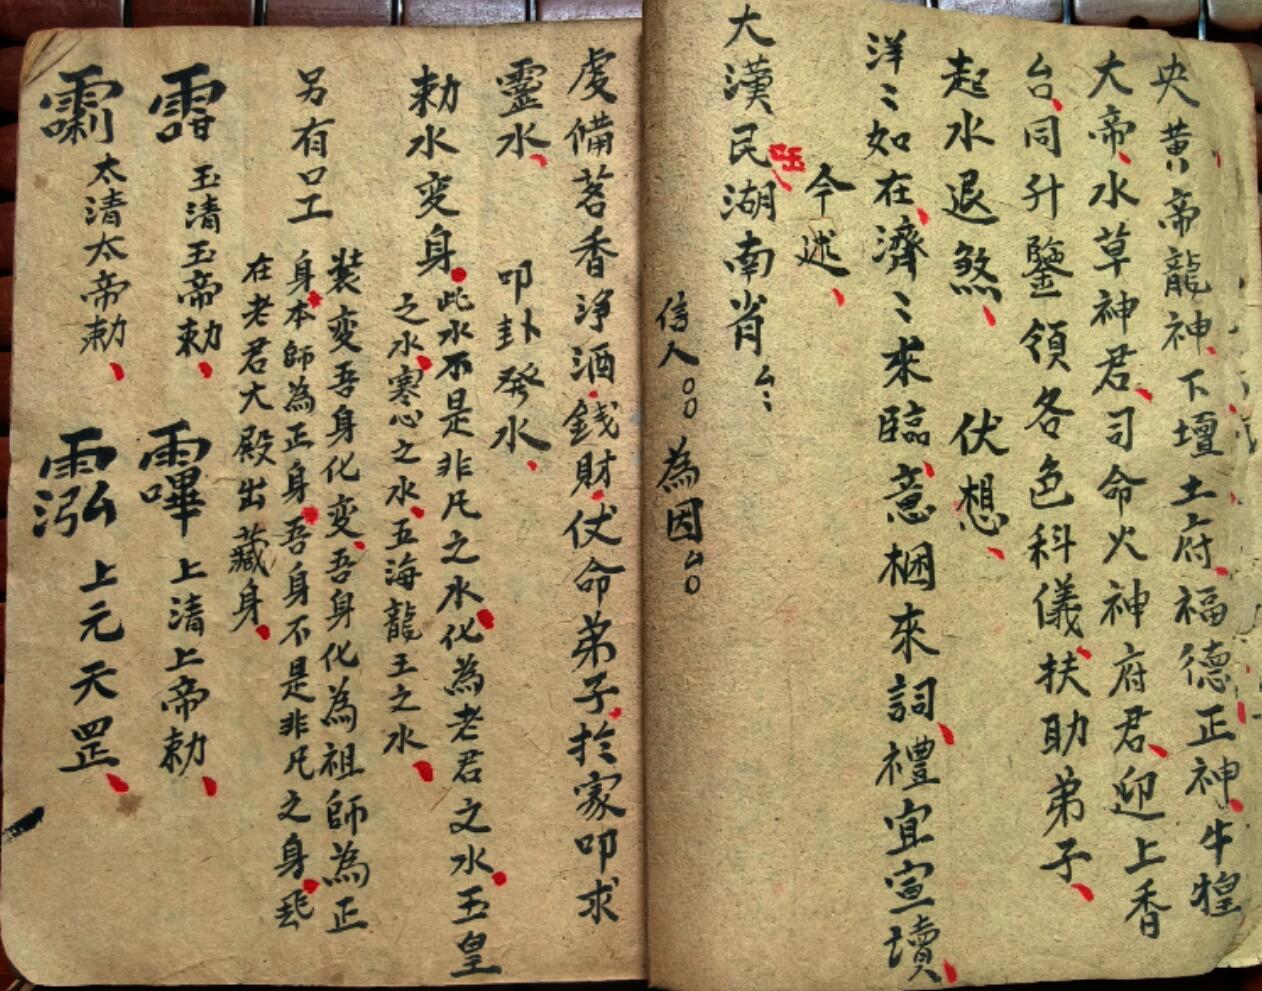 央黄帝龍神下壇土府福德正神牛
大帝水草神君司命火神府君迎上香
台同升鑒領各色科儀扶助弟子
起水退煞 伏想
洋〻如在濟〻來臨意梱來詞禮宜宣讀
今述
大漢民湖南肖厶〻
信人〇〇為因厶〇
虔備茗香淨酒錢財伏命弟子扵家叩求
靈水 叩卦發水
勅水変身 此水不是非凡之水化為老君之水玉皇
之水寒心之水五海龍王之水
另有口工 装変吾身化変吾身化為祖師為正
身本師為正身吾身不是非凡之身
在老君大殿出藏身
玉清玉帝勅 上清上帝勅
太清太帝勅 上元天罡